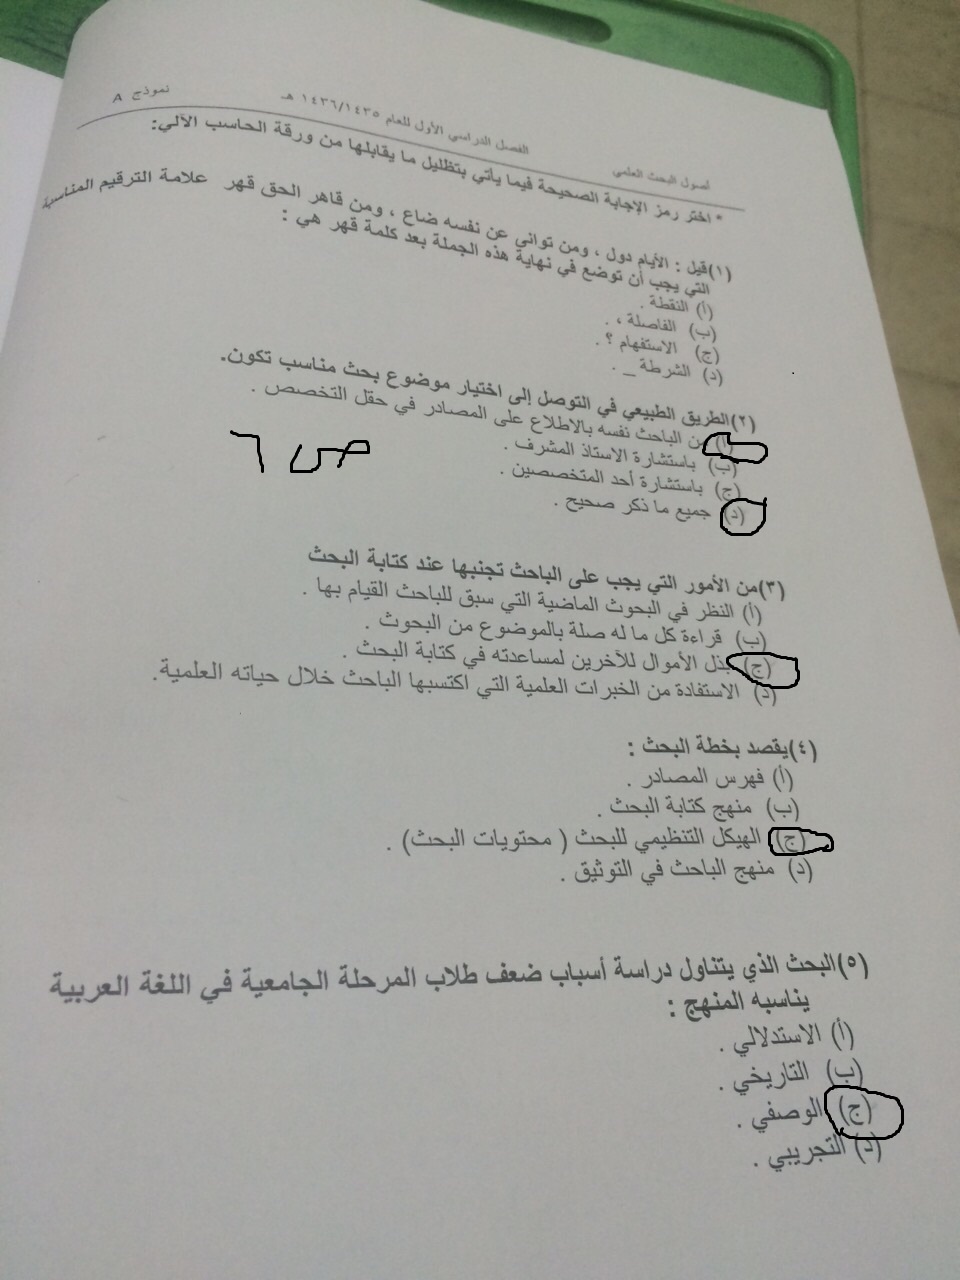 أصول البحث العلمي
الفصل الدراسي الأول للعام ١٤٣٦/١٤٣٥ هـ
نموذج A
* اختر رمز الإجابة الصحيحة فيما يأتي بتظليل ما يقابلها من ورقة الحاسب الآلي:
(١) قيل : الأيام دول ، ومن تواني عن نفسه ضاع ، ومن قاهر الحق قهر علامة الترقيم المناسبة
التي يجب أن توضع في نهاية هذه الجملة بعد كلمة قهر هي :
(أ) النقطة .
(ب) الفاصلة ، .
(ج) الاستفهام ؟ .
(د) الشرطة _ .
(٢) الطريق الطبيعي في التوصل إلى اختيار موضوع بحث مناسب تكون.
(أ) من الباحث نفسه بالاطلاع على المصادر في حقل التخصص .
(ب) باستشارة الاستاذ المشرف .
(ج) باستشارة أحد المتخصصين .
(د) جميع ما ذكر صحيح .
ص ٦
(٣) من الأمور التي يجب على الباحث تجنبها عند كتابة البحث
(أ) النظر في البحوث الماضية التي سبق للباحث القيام بها .
(ب) قراءة كل ما له صلة بالموضوع من البحوث .
(ج) بذل الأموال للآخرين لمساعدته في كتابة البحث .
(د) الاستفادة من الخبرات العلمية التي اكتسبها الباحث خلال حياته العلمية.
(٤) يقصد بخطة البحث :
(أ) فهرس المصادر .
(ب) منهج كتابة البحث .
(ج) الهيكل التنظيمي للبحث ( محتويات البحث) .
(د) منهج الباحث في التوثيق .
(٥) البحث الذي يتناول دراسة أسباب ضعف طلاب المرحلة الجامعية في اللغة العربية
يناسبه المنهج :
(أ) الاستدلالي .
(ب) التاريخي .
(ج) الوصفي .
(د) التجريبي .